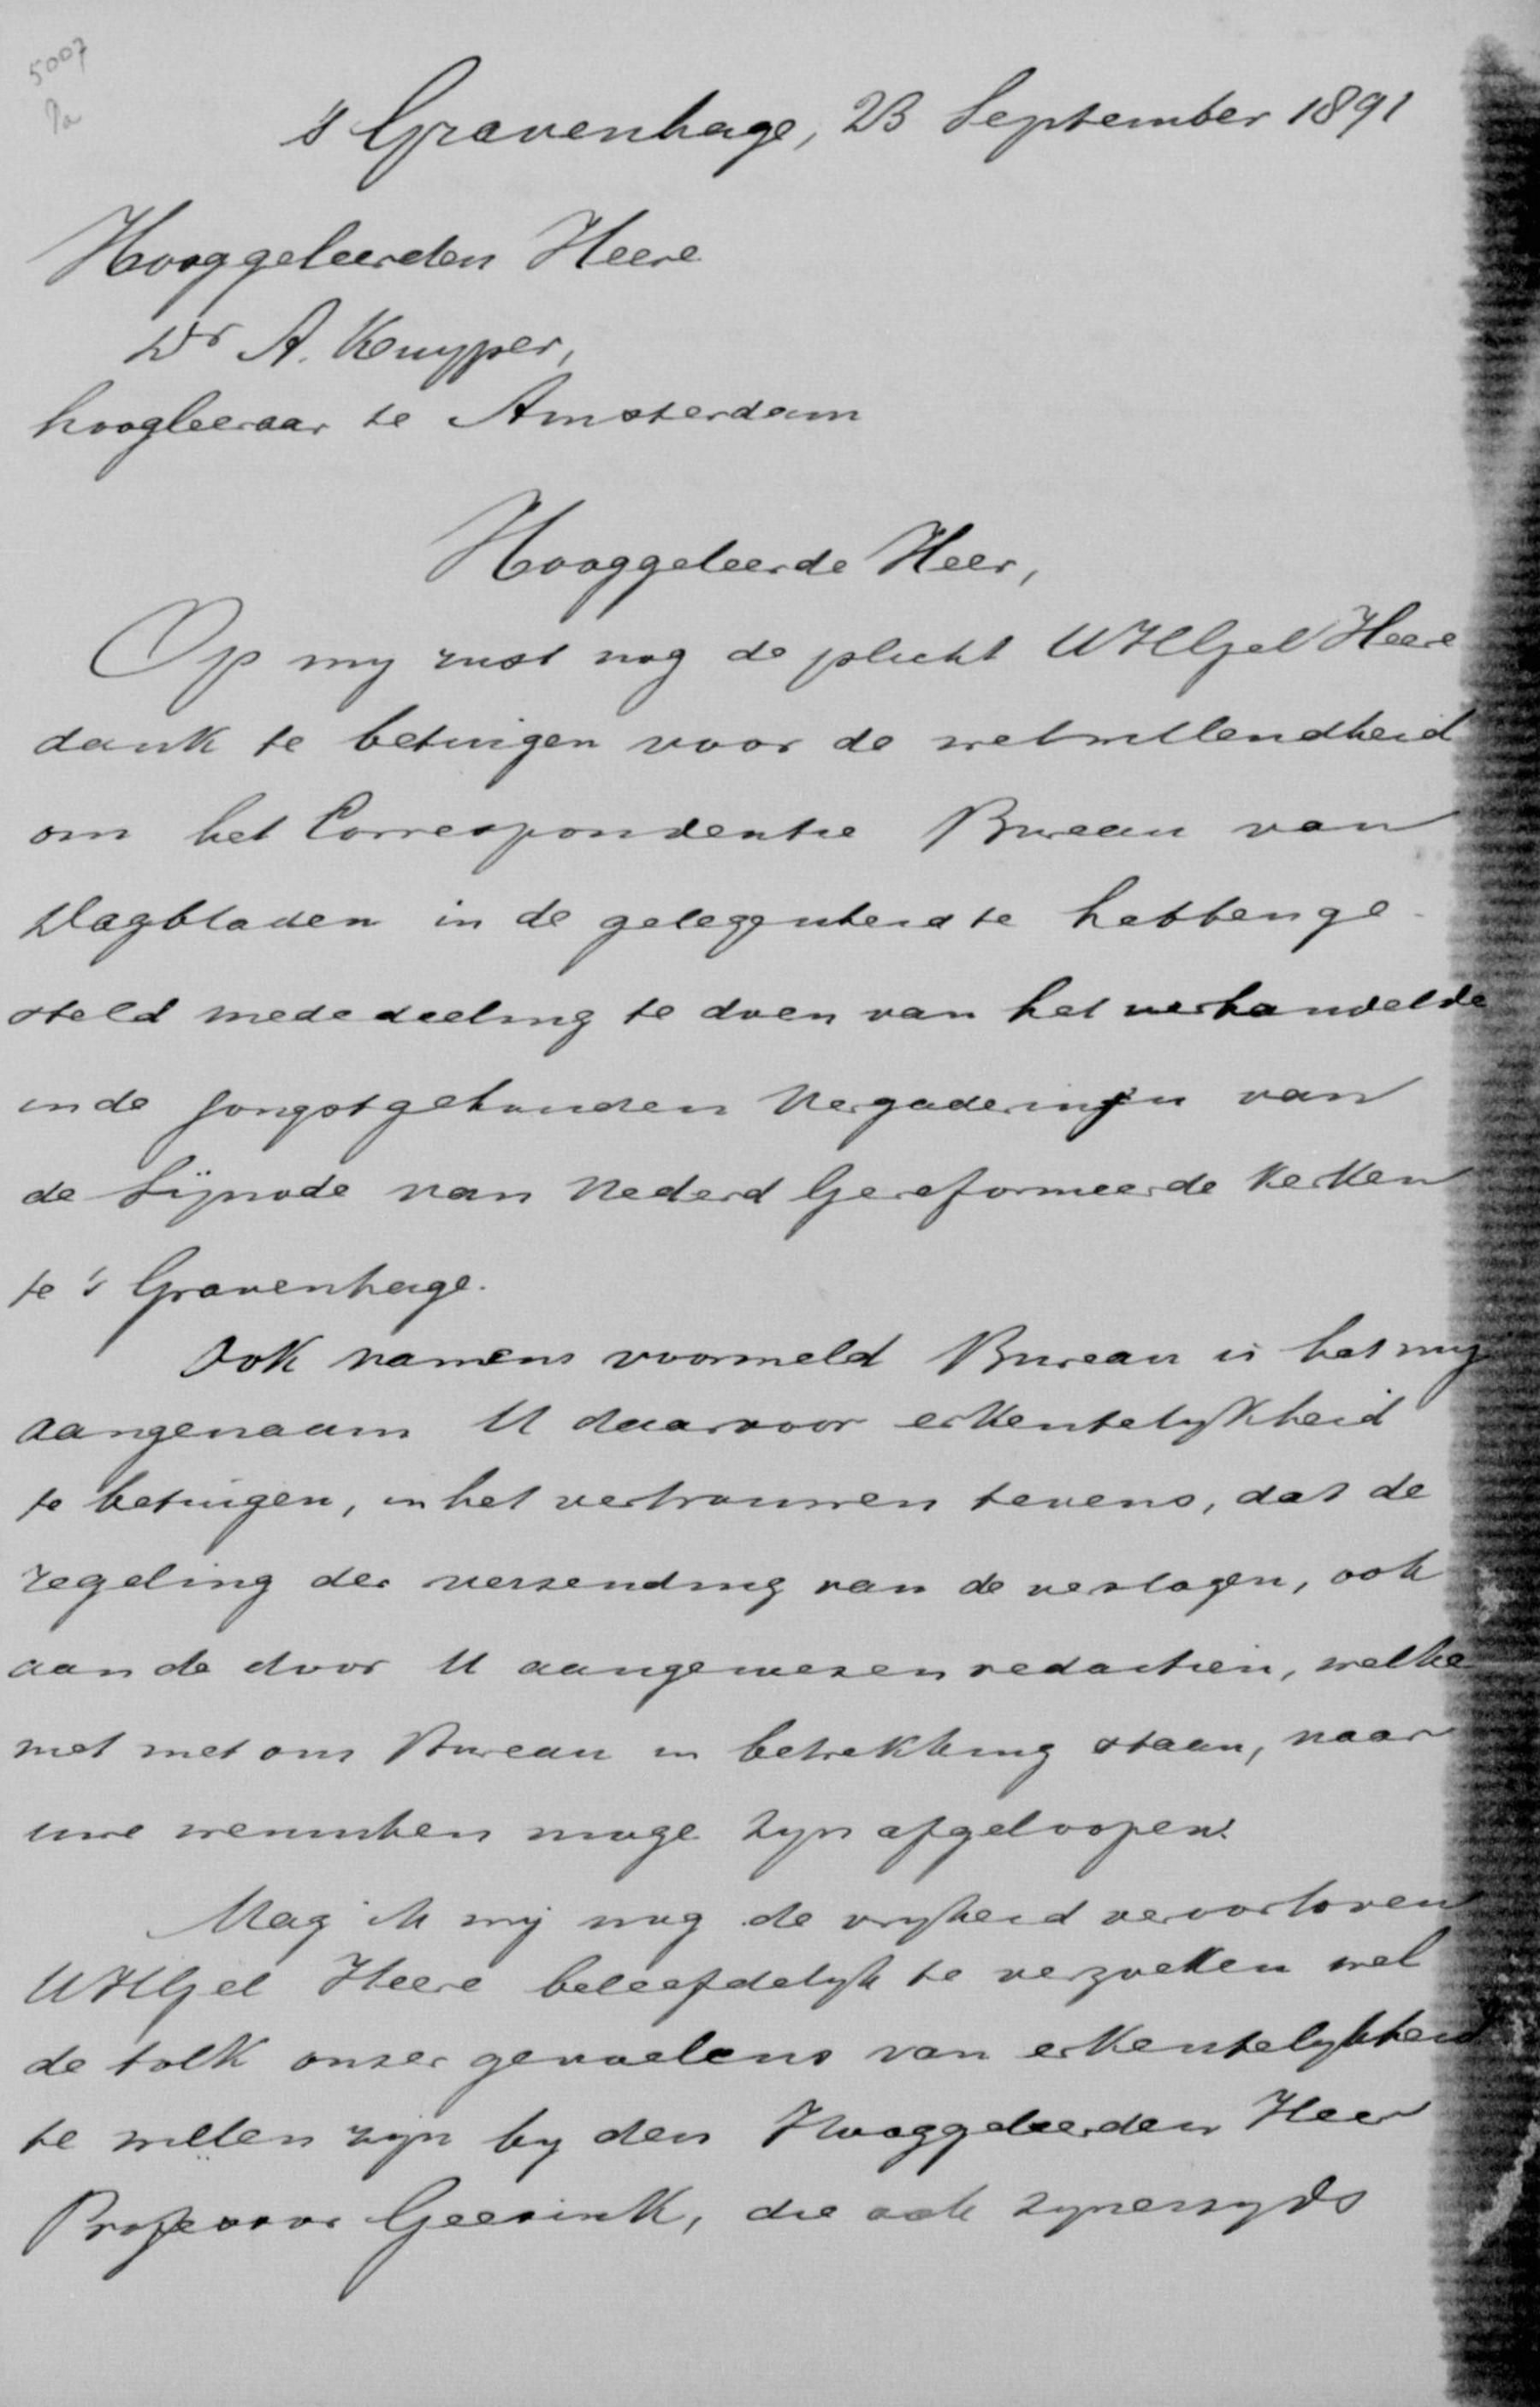 5007
's Gravenhage, 23 September 1891
Hooggeleerden Heere
Dr A. Kuyper,
hoogleeraar te Amsterdam
Hooggeleerde Heer,
Op my rust nog de plicht UHGel Heere
dank te betuigen voor de welwillendheid
om het Correspondentie Bureau van
Dagbladen in de gelegenheid te hebben ge-
steld mededeeling te doen van het verhandelde
in de jongstgehouden Vergaderingen van
de Sÿnode van Nederd Gereformeerde Kerken
te 's Gravenhage.
Ook namens voormeld Bureau is het my
aangenaam U daarvoor erkentelykheid
te betuigen, in het vertrouwen tevens, dat de
regeling der verzending van de verslagen, ook
aan de door U aangewezen redactien, welke
niet met ons Bureau in betrekking staan, naar
uwe wenschen moge zyn afgeloopen.
Mag ik mij nog de vryheid veroorloven
UHGel Heere beleefdelyk te verzoeken wel
de tolk onzer gevoelens van erkentelykheid
te willen zijn by den Hooggeleerden Heer
Professor Geesink, die ook zynerzyds